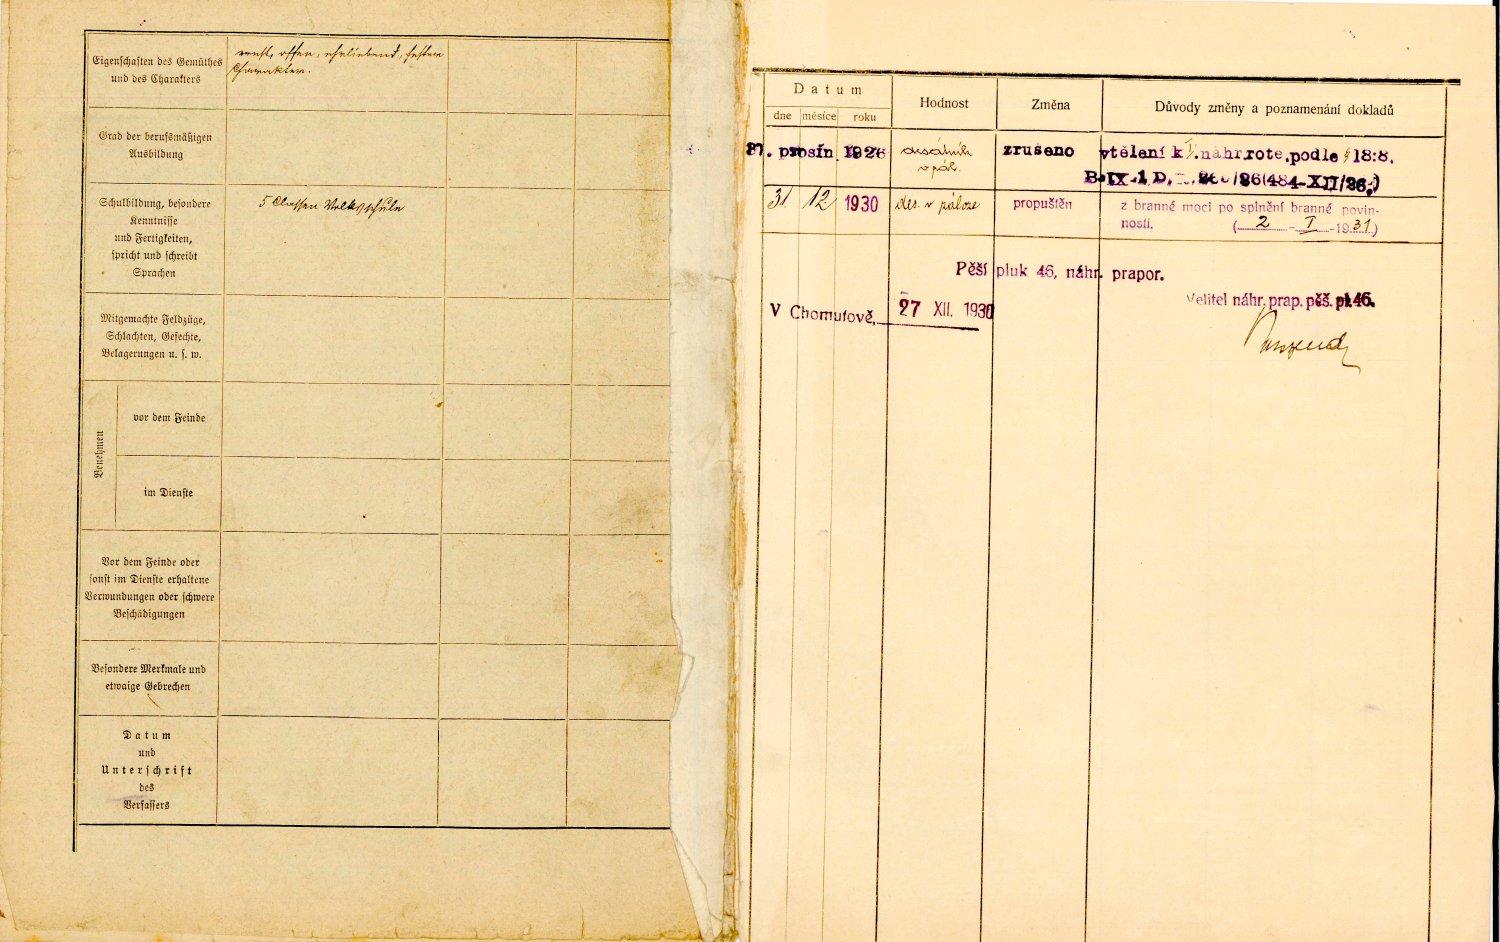 Eigenschaften des Gemüthes
und des Charakters
ernst, offen, ehrliebend, festen
Charakters.
Grad der berufsmäßigen
Ausbildung
Schulbildung, besondere
Kenntnisse
und Fertigkeiten,
spricht und schreibt
Sprachen
5 Classen Volksschule
Mitgemachte Feldzüge,
Schlachten, Gefechte,
Belagerungen u. s. w.
Benehmen
vor dem Feinde
im Dienste
Vor dem Feinde oder
sonst im Dienste erhaltene
Verwundungen oder schwere
Beschädigungen
Besondere Merkmale und
etwaige Gebrechen
Datum
und
Unterschrift
des
Verfassers
Datum
Hodnost
Změna
Důvody změny a poznamenání dokladů
dne měsíce roku
. prosin. 1926 desátník zrušeno vtělení k náhr.rote.podle § 18:8.
v zál.
31 12 1930 des. v záloze propuštěn z branné moci po splnění branné povin-
nosti. (2 - I - 1931)
Pěší pluk 46, náhr. prapor.
Velitel náhr. prap. pěš. pl. 46.
V Chomutově, 27 XII. 1930